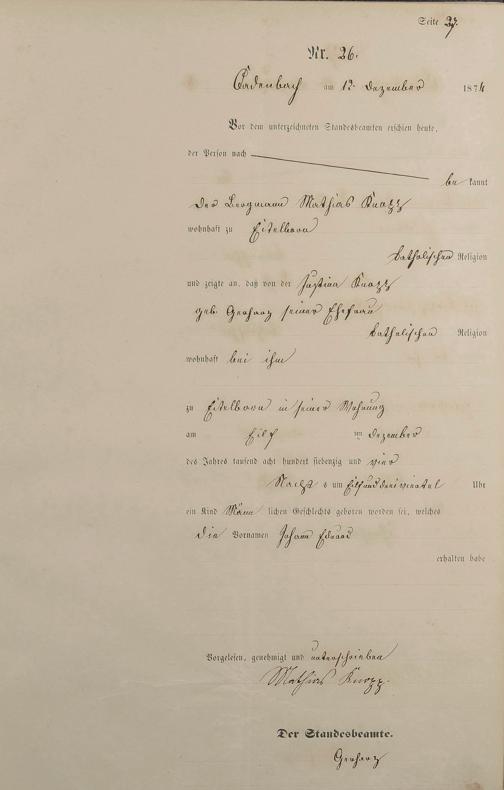 Seite 27.
Nr. 26.
Cadenbach am 12. Dezember 1874
Vor dem unterzeichneten Standesbeamten erschien heute,
der Person nach
be kannt
der Bergmann Mathias Knopp
wohnhaft zu Eitelborn
katholischer Religion
und zeigte an, daß von der Justina Knopp
geb. Gerharz seiner Ehefrau
katholischer Religion
wohnhaft bei ihm
zu Eitelborn in seiner Wohnung
am Eilf ten Dezember
des Jahres tausend acht hundert siebenzig und vier
Nachts um Eilf und drei viertel Uhr
ein Kind Männ lichen Geschlechts geboren worden sei, welches
die Vornamen Johann Eduard
erhalten habe
Vorgelesen, genehmigt und unterschrieben
Mathias Knopp.
Der Standesbeamte.
Gerharz